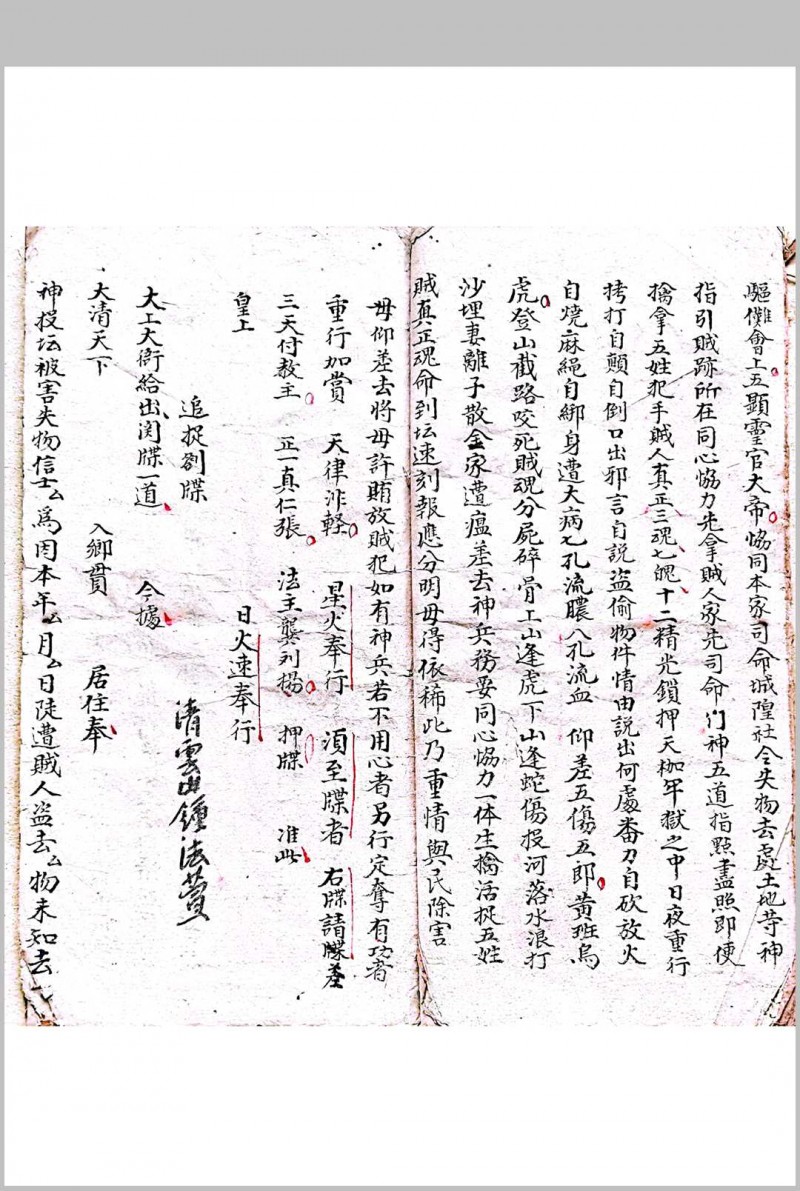 驅儺會上五顯灵官大帝協同本家司命城隍社令失物去處土地等神
指引賊跡所在同心協力先拿賊人家先司命门神五道指點盡照即便
擒拿五姓犯手賊人真正三魂七魄十二精光鎖押天枷牢獄之中日夜重行
拷打自顛自倒口出邪言自説盜偷物件情由説出何處番刀自砍放火
自燒麻繩自綁身遭大病七孔流膿八孔流血 仰差五傷五郎黄班烏
虎登山截路咬死賊魂分屍碎骨上山逢虎下山逢蛇傷投河落水浪打
沙埋妻離子散全家遭瘟差去神兵務要同心協力一体生擒活捉五姓
賊真正魂命到坛速刻報應分明毋得依稀此乃重情與民除害
毋仰差去將毋許賄放賊犯如有神兵若不用心者另行定奪有功者
重行加賞 天律非軽 星火奉行 須至牒者 右牒請牒差
三天付教主 正一真仁張 法主龔刘楊 押牒 准此
皇上 日火速奉行
追捉劄牒 清雲山鍾法
大上大衙給出関牒一道 今據
大清天下 入鄉貫 居住奉
神投坛被害失物信士厶爲因本年厶月厶日陡遭賊人盗去厶物未知去